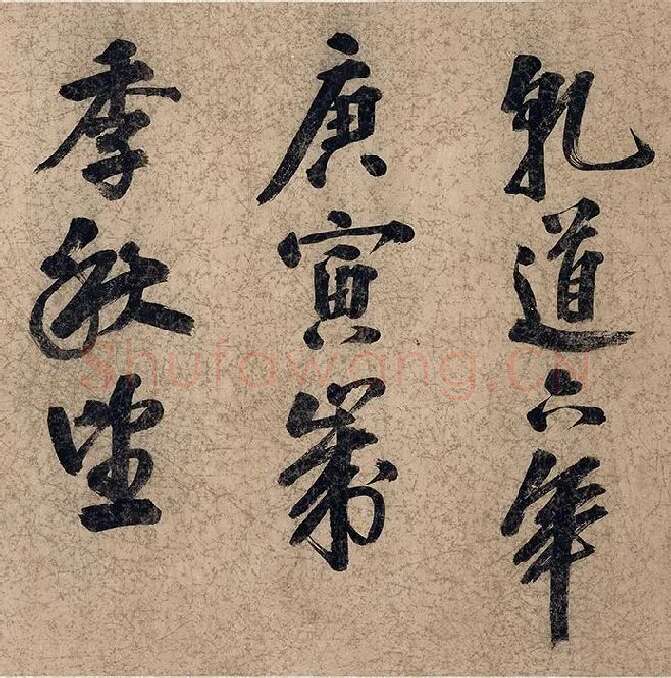 乾道六年
庚寅歲
季秋望
Shufawang.CN